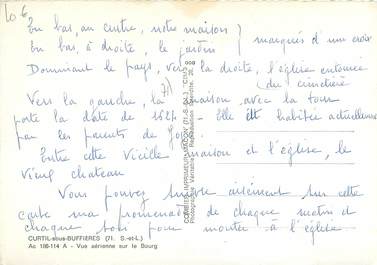 10 6
En bas, au centre, notre maison }
En bas, à droite, le jardin } marqués d'une croix
Dominant le pays, vers la droite, l'église entourée
du cimetière
Vers la gauche, la maison avec la tour
porte la date de 1624 - Elle est habitée actuellement
par les parents de
Entre cette vieille maison et l'église, le
vieux chateau
Vous pouvez suivre aisément sur cette
carte ma promenade de chaque matin et
chaque soir pour monter à l'église
CURTIL-sous-BUFFIÈRES (71. S.-et-L.)
Ac 118-114 A - Vue aérienne sur le Bourg
COMBIER IMPRIMEUR MACON (71. S.-&-L.) "CIM"
Photographie Véritable - Reproduction interdite.